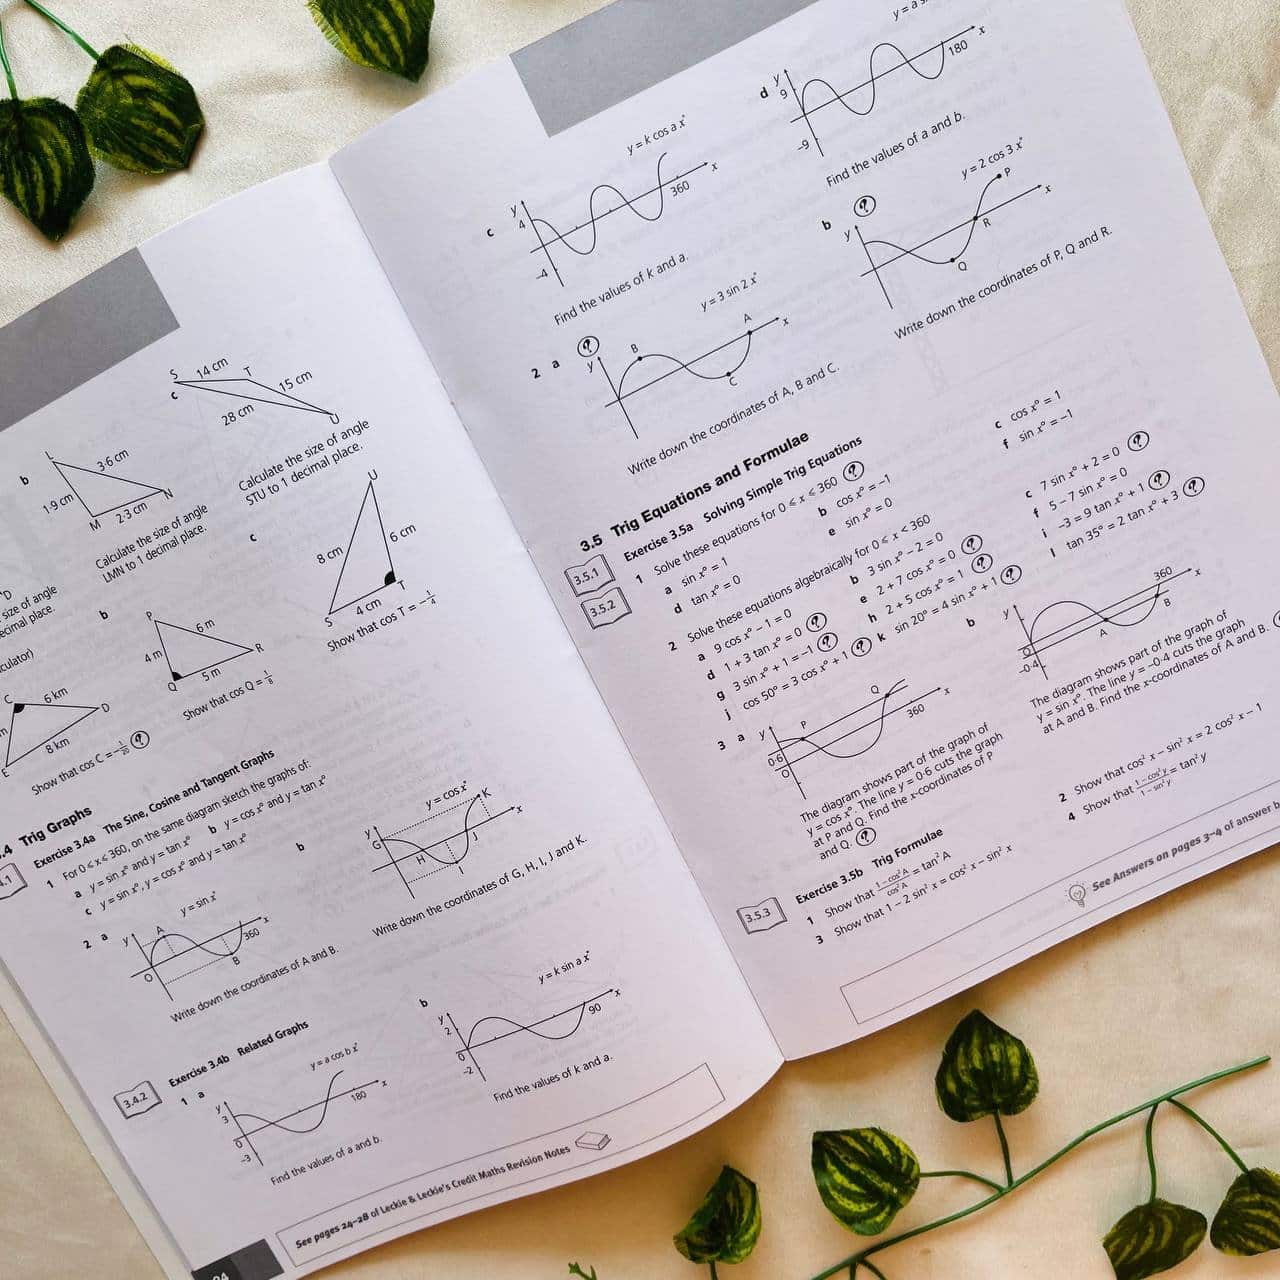 S
14 cm
T
c
15 cm
28 cm
U
b
L
3·6 cm
1·9 cm
N
M
2·3 cm
Calculate the size of angle
STU to 1 decimal place.
Calculate the size of angle
LMN to 1 decimal place.
D
size of angle
place.
c
U
8 cm
6 cm
S
4 cm
T
Show that cos T = −1/4
b
P
6 m
4 m
R
Q
5 m
Show that cos Q = 1/8
C
6 km
D
8 km
E
Show that cos C = −1/20 ?
Trig Graphs
Exercise 3.4a The Sine, Cosine and Tangent Graphs
1 For 0 ⩽ x ⩽ 360, on the same diagram sketch the graphs of:
a y = sin x° and y = tan x° b y = cos x° and y = tan x°
c y = sin x°, y = cos x° and y = tan x°
2 a
y
A
y = sin x°
x
360
O
B
Write down the coordinates of A and B.
b
y = cos x°
y
K
x
G
H
J
I
Write down the coordinates of G, H, I, J and K.
3.4.2
Exercise 3.4b Related Graphs
1 a
y = a cos b x°
y
3
x
180
O
-3
Find the values of a and b.
b
y = k sin a x°
y
2
x
90
O
-2
Find the values of k and a.
See pages 24–28 of Leckie & Leckie's Credit Maths Revision Notes
c
y = k cos a x°
y
4
x
360
-4
Find the values of k and a.
d
y
9
x
180
-9
Find the values of a and b.
2 a ?
y = 3 sin 2 x°
y
B
A
x
C
Write down the coordinates of A, B and C.
b ?
y = 2 cos 3 x°
y
P
x
R
Q
Write down the coordinates of P, Q and R.
3.5 Trig Equations and Formulae
3.5.1
Exercise 3.5a Solving Simple Trig Equations
1 Solve these equations for 0 ⩽ x ⩽ 360 ?
a sin x° = 1 b cos x° = −1 c cos x° = 1
d tan x° = 0 e sin x° = 0 f sin x° = −1
3.5.2
2 Solve these equations algebraically for 0 ⩽ x < 360
a 9 cos x° − 1 = 0 b 3 sin x° − 2 = 0 c 7 sin x° + 2 = 0 ?
d 1 + 3 tan x° = 0 ? e 2 + 7 cos x° = 0 ? f 5 − 7 sin x° = 0
g 3 sin x° + 1 = −1 ? h 2 + 5 cos x° = 1 ? i −3 = 9 tan x° + 1 ?
j cos 50° = 3 cos x° + 1 ? k sin 20° = 4 sin x° + 1 ? l tan 35° = 2 tan x° + 3 ?
3 a
y
P
Q
x
0·6
O
360
The diagram shows part of the graph of
y = cos x°. The line y = 0·6 cuts the graph
at P and Q. Find the x-coordinates of P
and Q. ?
b
y
360
x
O
-0·4
A
B
The diagram shows part of the graph of
y = sin x°. The line y = −0·4 cuts the graph
at A and B. Find the x-coordinates of A and B.
3.5.3
Exercise 3.5b Trig Formulae
1 Show that (1 − cos² A)/(cos² A) = tan² A
2 Show that cos² x − sin² x = 2 cos² x − 1
3 Show that 1 − 2 sin² x = cos² x − sin² x
4 Show that (1 − cos² y)/(1 − sin² y) = tan² y
See Answers on pages 3–4 of answer